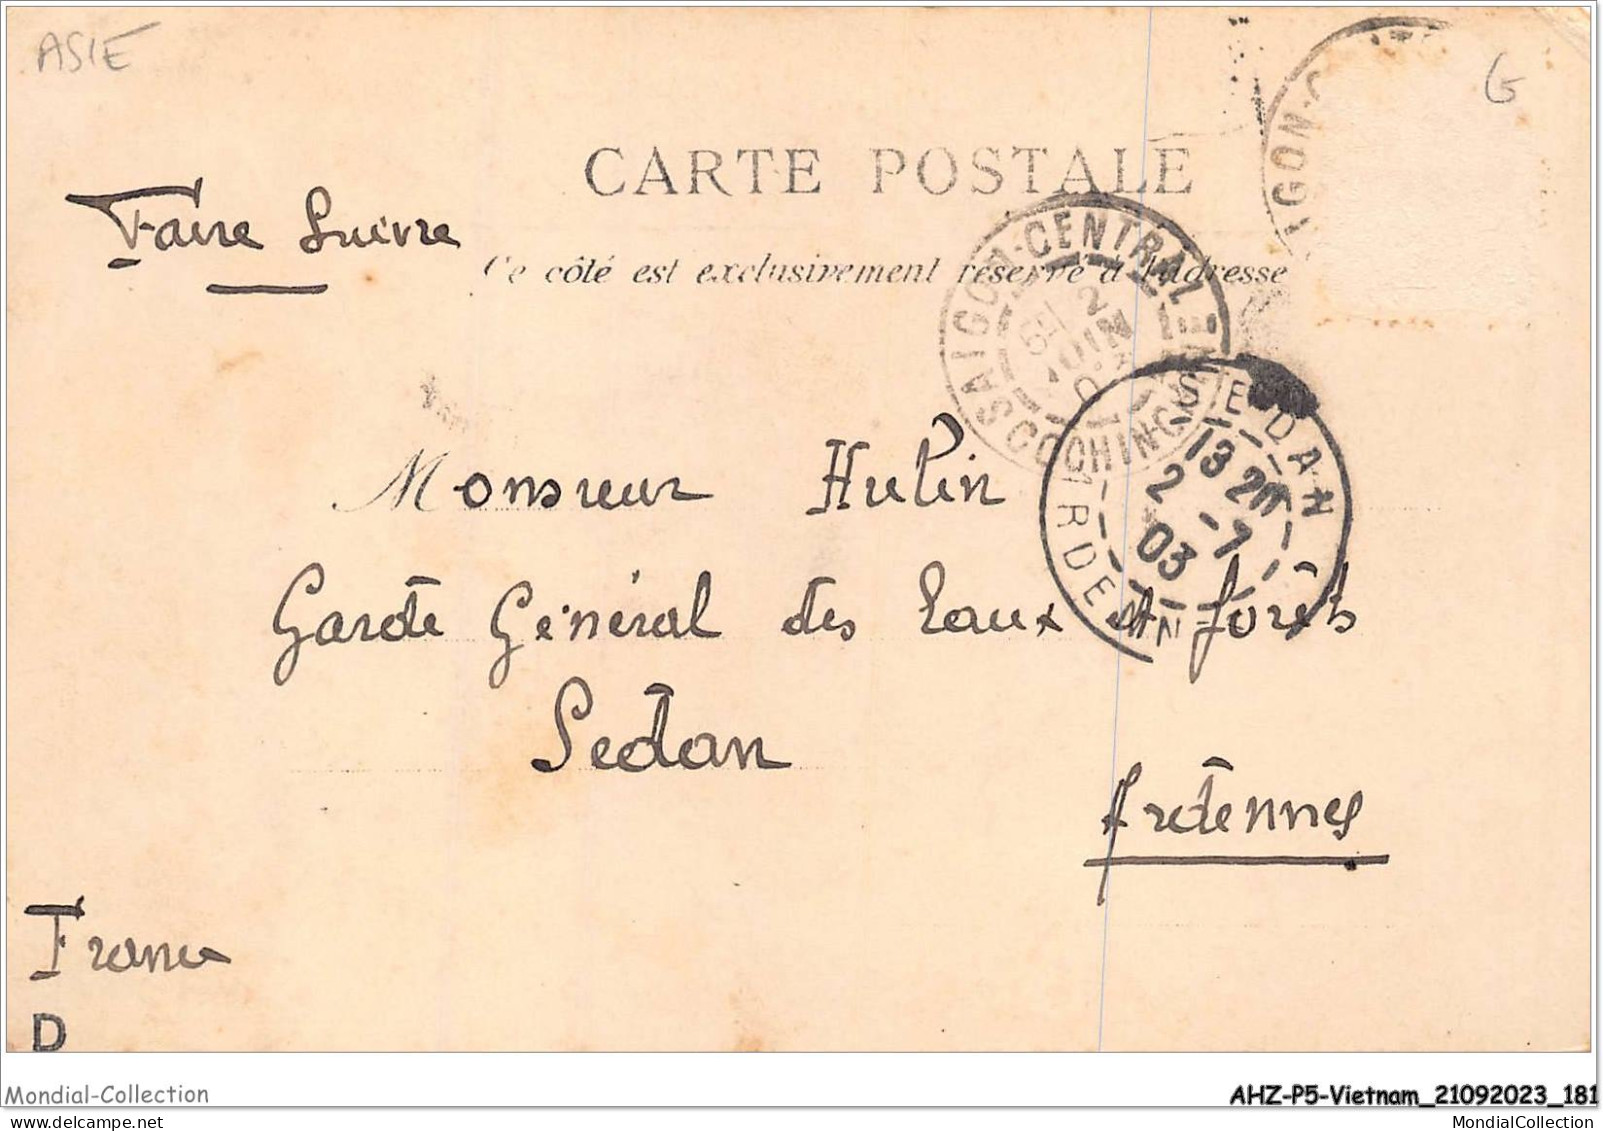 ASIE
G
CARTE POSTALE
Faire Suivre
Ce côté est exclusivement réservé à l'adresse
SAIGON-CENTRAL
2
JUIN
COCHINCHINE
SEDAN
13 20
2 -7
03
ARDENNES
Monsieur Hulin
Garde Général des Eaux et forêts
Sedan
Ardennes
France
D
Mondial-Collection
AHZ-P5-Vietnam_21092023_181
MondialCollection